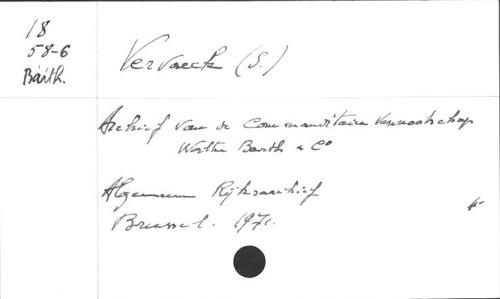 18
58-6
Barth.
Vervaeck (S.)
Archief van de Commanditaire Vennootschap
Barth & Co
Algemeen Rijksarchief
Brussel. 1971.